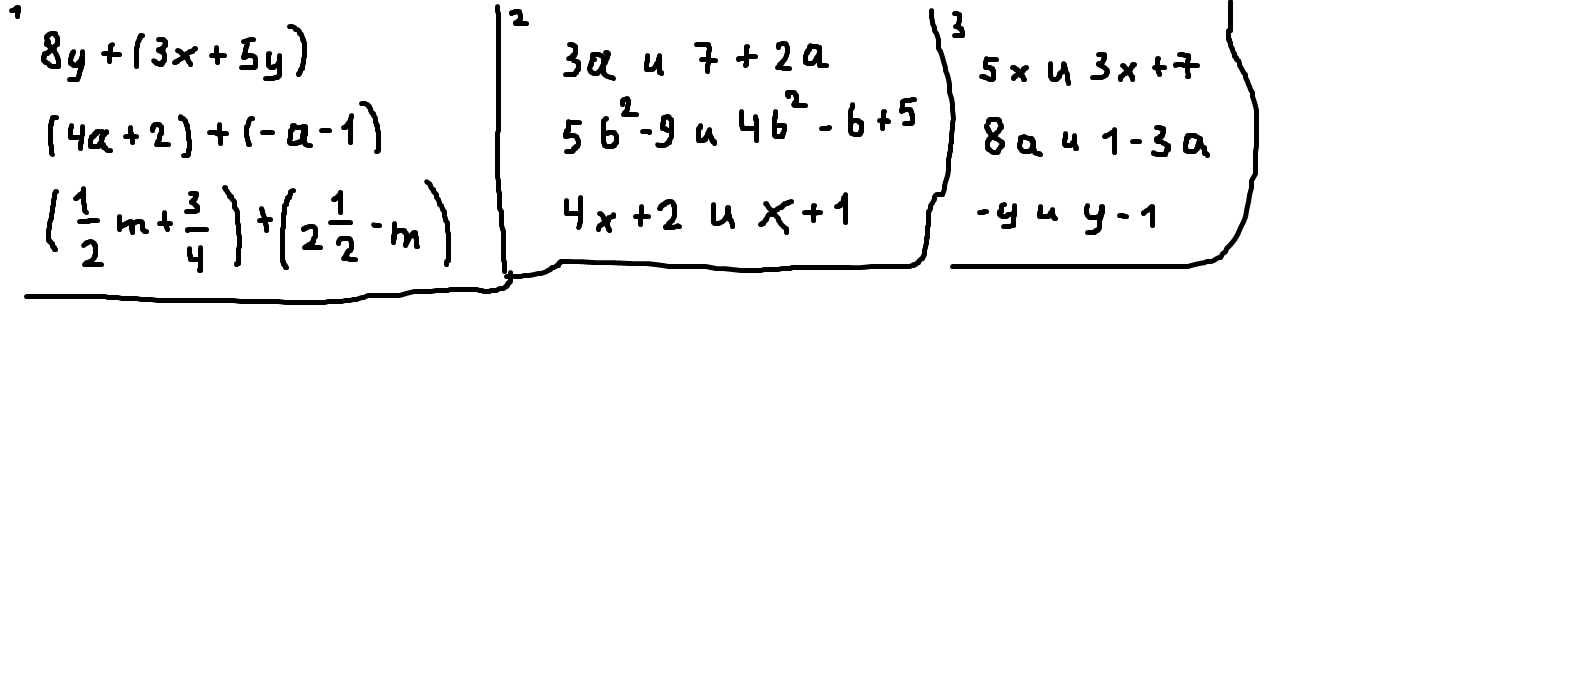 1
8y + (3x + 5y)
(4a + 2) + (-a - 1)
(1/2 m + 3/4) + (2 1/2 - m)
2
3a и 7 + 2a
5b² - 9 и 4b² - b + 5
4x + 2 и x + 1
3
5x и 3x + 7
8a и 1 - 3a
-y и y - 1